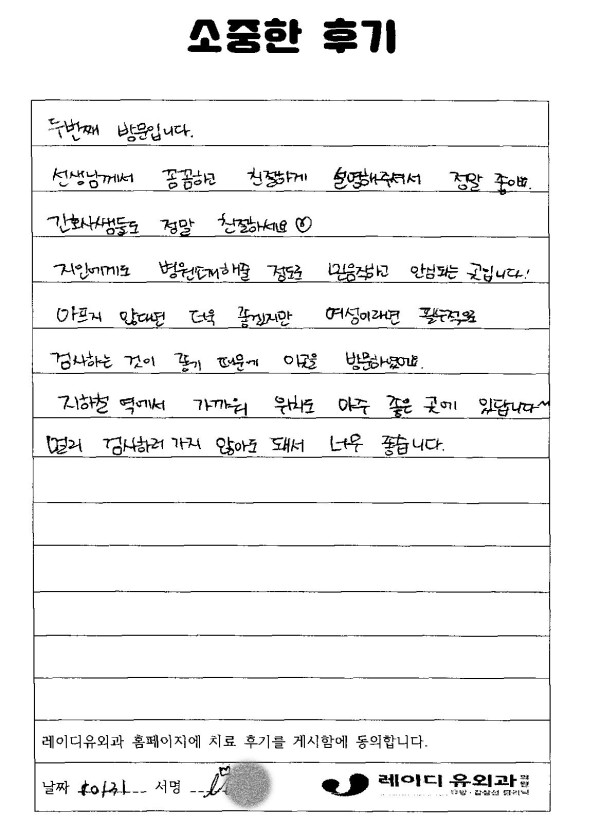 소중한 후기
두번째 방문입니다.
선생님께서 꼼꼼하고 친절하게 설명해주셔서 정말 좋아요.
간호사쌤들도 정말 친절하세요
지인에게도 병원소개해줄 정도로 믿음직하고 안심되는 곳입니다!
아프지 않다면 더욱 좋겠지만 여성이라면 필수적으로
검사하는 것이 좋기 때문에 이곳을 방문하였어요.
지하철 역에서 가까워 위치도 아주 좋은 곳에 있답니다~
멀리 검사하러 가지 않아도 돼서 너무 좋습니다.
레이디유외과 홈페이지에 치료 후기를 게시함에 동의합니다.
날짜 10/31 서명
레이디 유외과 의원
유방·갑상선 클리닉